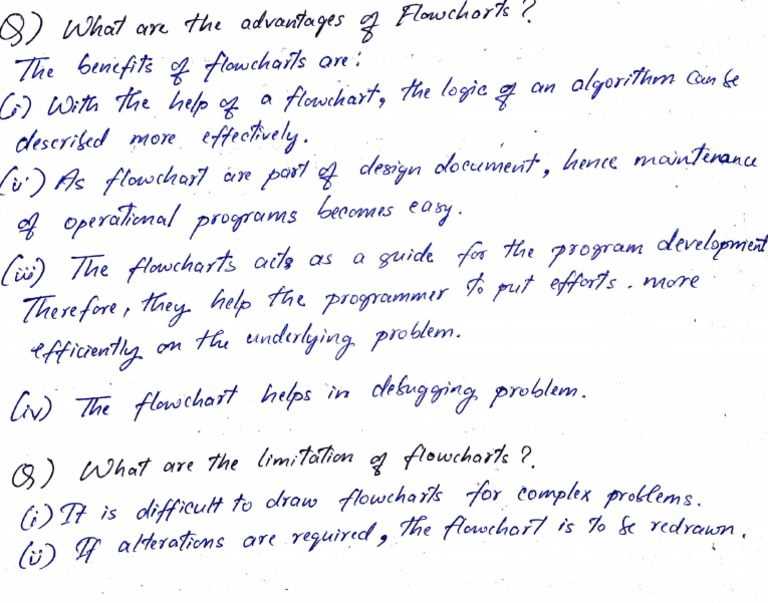 Q) What are the advantages of Flowcharts?
The benefits of flowcharts are:
(i) With the help of a flowchart, the logic of an algorithm can be
described more effectively.
(ii) As flowchart are part of design document, hence maintenance
of operational programs becomes easy.
(iii) The flowcharts acts as a guide for the program development
Therefore, they help the programmer to put efforts. more
efficiently on the underlying problem.
(iv) The flowchart helps in debugging problem.
Q) What are the limitation of flowcharts?
(i) It is difficult to draw flowcharts for complex problems.
(ii) If alterations are required, the flowchart is to be redrawn.